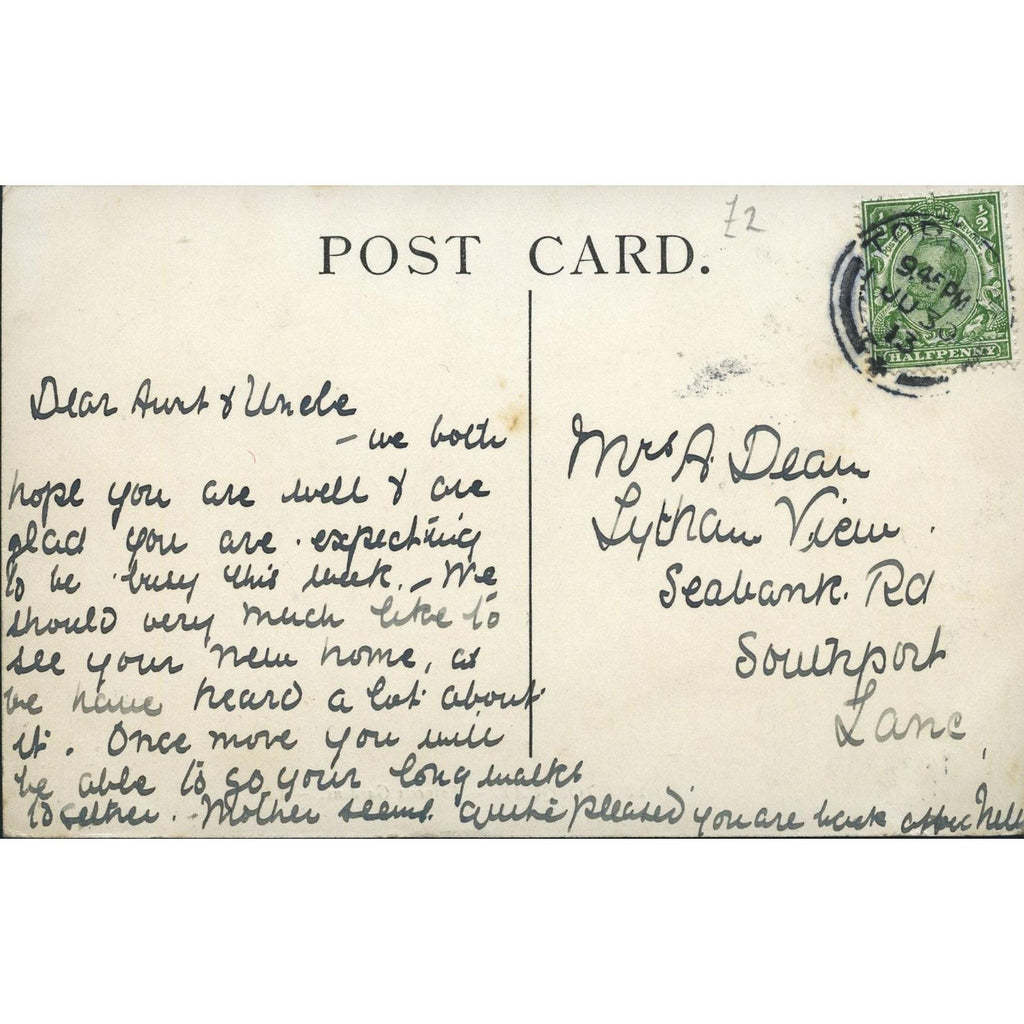 £2
POST CARD.
½ ½
HALFPENNY
9.45 PM
JU 30
13
Dear Aunt & Uncle
– we both
hope you are well & are
glad you are expecting
to be busy this week. – We
should very much like to
see your new home, as
we have heard a lot about
it. Once more you will
be able to go your long walks
together. Mother seems quite pleased you are back
Mrs A. Dean
Lytham View.
Seabank. Rd
Southport
Lanc